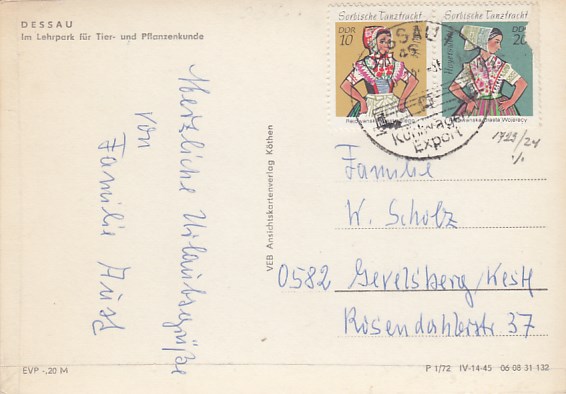 DESSAU
Im Lehrpark für Tier- und Pflanzenkunde
Sorbische Tanztracht
DDR
10
Sorbische Tanztracht
DDR
20
Hoyerswerda
Wojerecy
DESSAU
45
Kühlwagen
Export
1723/24
Herzliche Urlaubsgrüße
von
Familie
VEB Ansichtskartenverlag Köthen
Familie
W. Scholz
0582 Gevelsberg/Westf
Rosendahlerstr 37
EVP -,20 M
P 1/72 IV-14-45 06 08 31 132